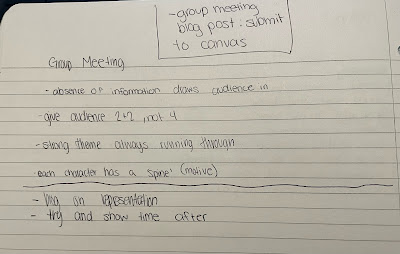 -group meeting
blog post : submit
to canvas
Group Meeting
- absence of information draws audience in
- give audience 2+2, not 4
- strong theme always running through
- each character has a 'spine' (motive)
- blog on representation
- try and show time after